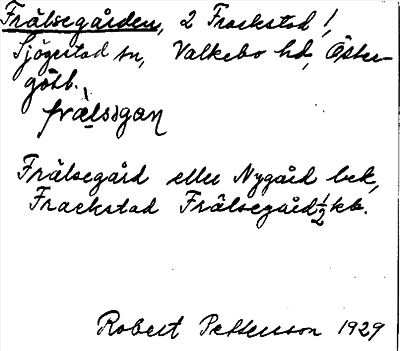 Frälsegården, 2 Frackstad !
Sjögestad sn, Valkebo hd, Öster-
götl.
frälsıgan
Frälsegård eller Nygård bek,
Frackstad Frälsegård ½ kb.
Robert Pettersson 1929